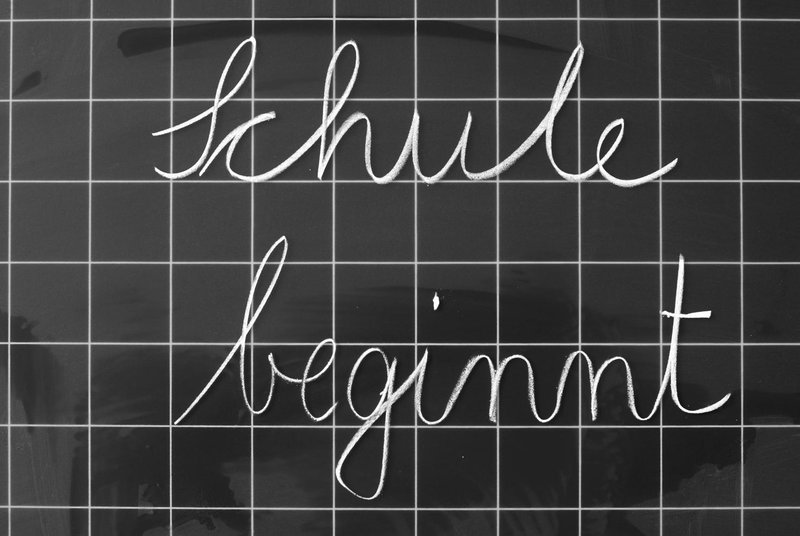 Schule
beginnt